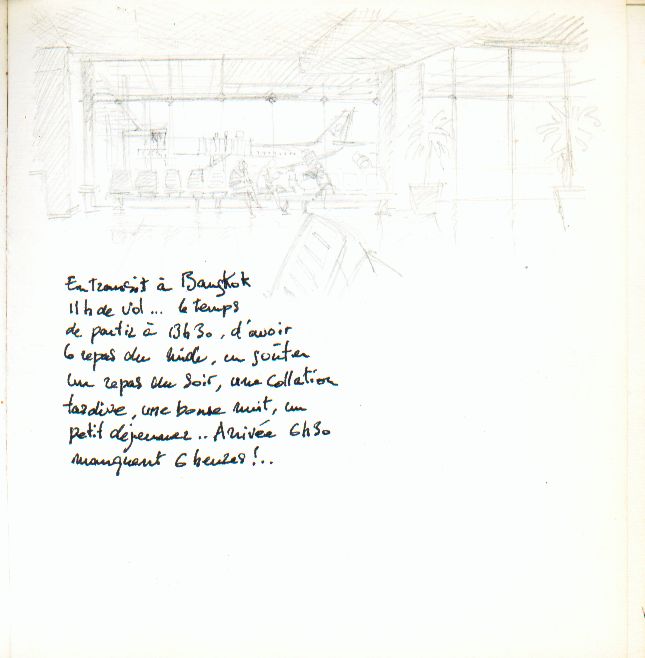 En transit à Bangkok
11h de vol... le temps
de partir à 13h30, d'avoir
le repas du midi, un goûter
un repas du soir, une collation
tardive, une bonne nuit, un
petit déjeuner.. Arrivée 6h30
manquent 6 heures!..